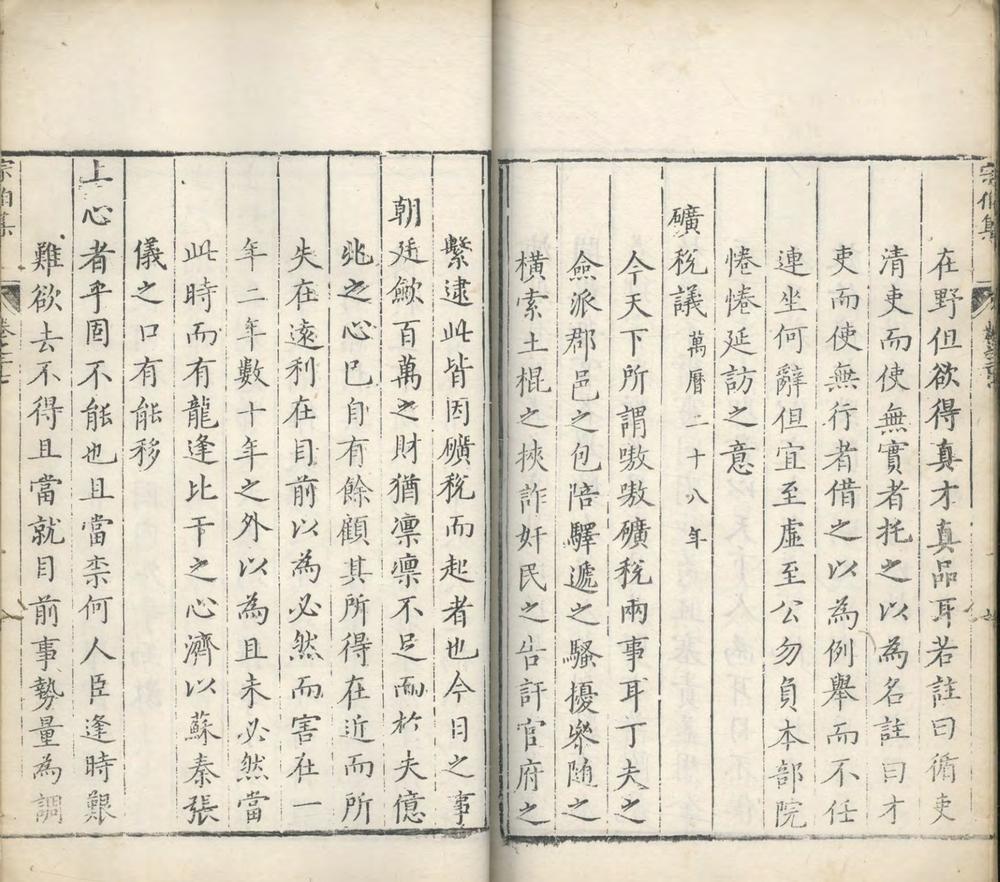 宗伯集
在野但欲得真才真品耳若註曰循吏
清吏而使無實者托之以為名註曰才
吏而使無行者借之以為例舉而不任
連坐何辭但宜至虛至公勿負本部院
惓惓延訪之意
礦稅議 萬曆二十八年
今天下所謂嗷嗷礦稅兩事耳丁夫之
僉派郡邑之包陪驛遞之騷擾參随之
橫索土棍之挾詐奸民之告訐官府之
繫逮此皆因礦稅而起者也今日之事
朝廷歛百萬之財猶凛凛不足而於夫億
兆之心已自有餘顧其所得在近而所
失在遠利在目前以為必然而害在一
年二年數十年之外以為且未必然當
此時而有龍逢比干之心濟以蘇秦張
儀之口有能移
上心者乎固不能也且當柰何人臣逢時艱
難欲去不得且當就目前事勢量為調
宗伯集